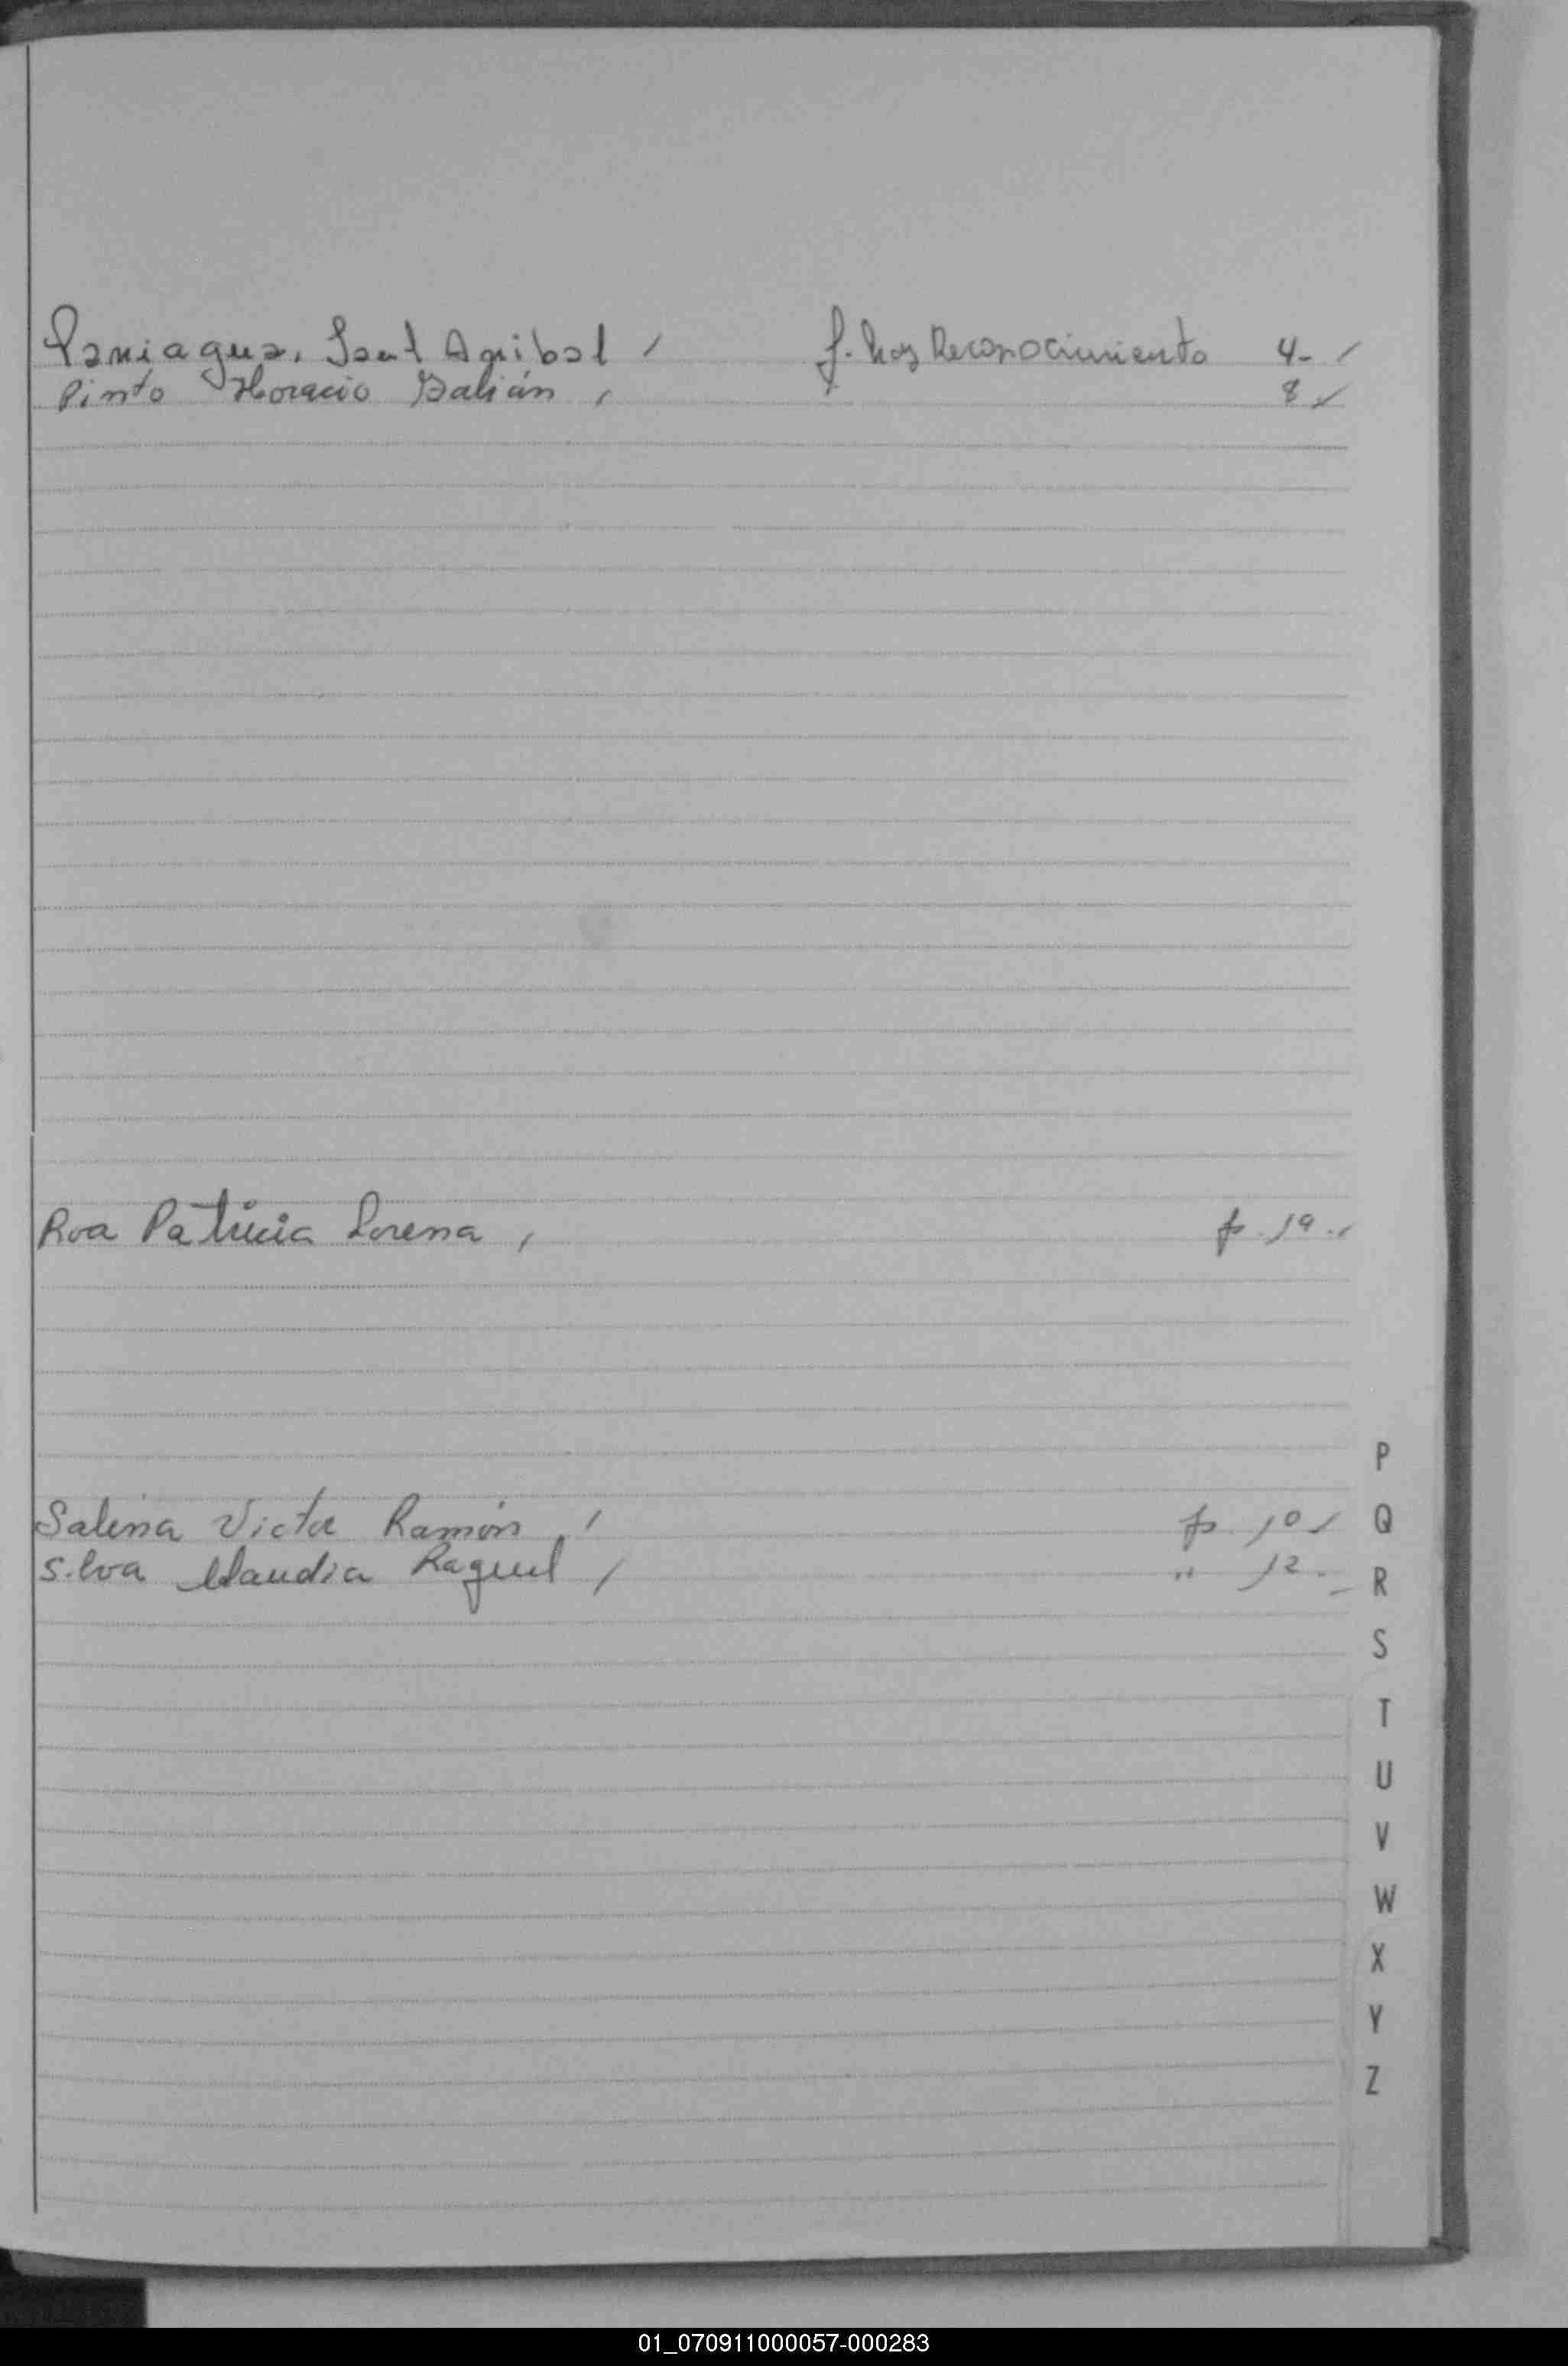 Paniagua, Saul Anibal / f. hay Reconocimiento 4- /
Pinto Horacio Galián / 8 /
Roa Patricia Lorena / fs. 19 .-
Salina Victor Ramón . / fs. 10 /
Silva Claudia Raquel / " 12 . -
P
Q
R
S
T
U
V
W
X
Y
Z
01_070911000057-000283